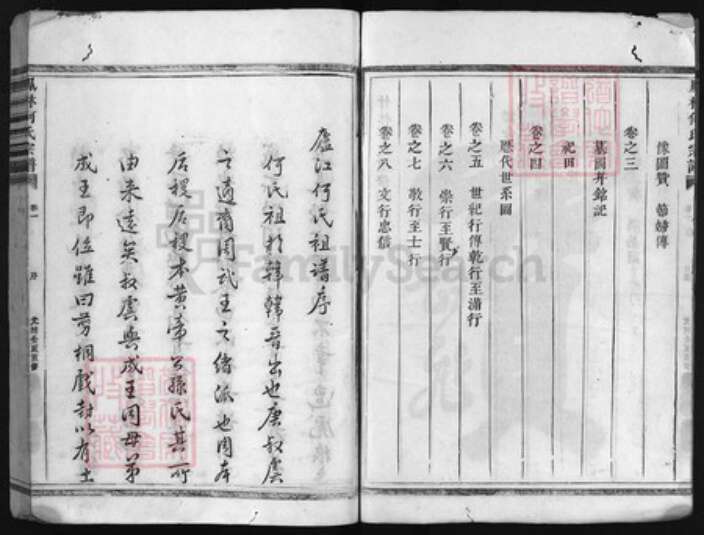 像圖贊 節婦傳
卷之三
墓圖并銘記
祀田
卷之四
歷代世系圖
卷之五 世紀行傳乾行至清行
卷之六 崇行至賢行
卷之七 敦行至士行
卷之八 文行忠信
廬江何氏祖譜序
何氏祖於韓韓晉出也唐叔虞
之適裔周武王之緒派也周本
后稷后稷本黃帝公孫氏其所
由来遠矣叔虞與成王同母弟
成王即位雖曰剪桐戲封以有土
鳳林何氏宗譜 卷一 序
FamilySearch